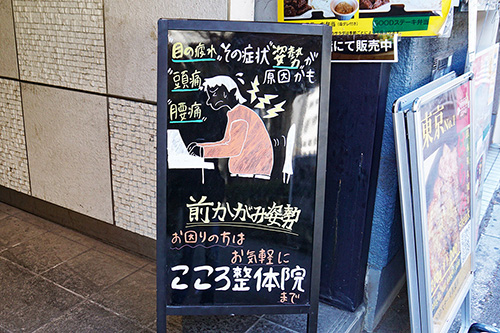 "目の疲れ"
"頭痛"
"腰痛"
その症状"姿勢"が
原因かも
前かがみ姿勢
お困りの方は
お気軽に
こころ整体院
まで
GOODステーキ弁当
にて販売中
東京No.1